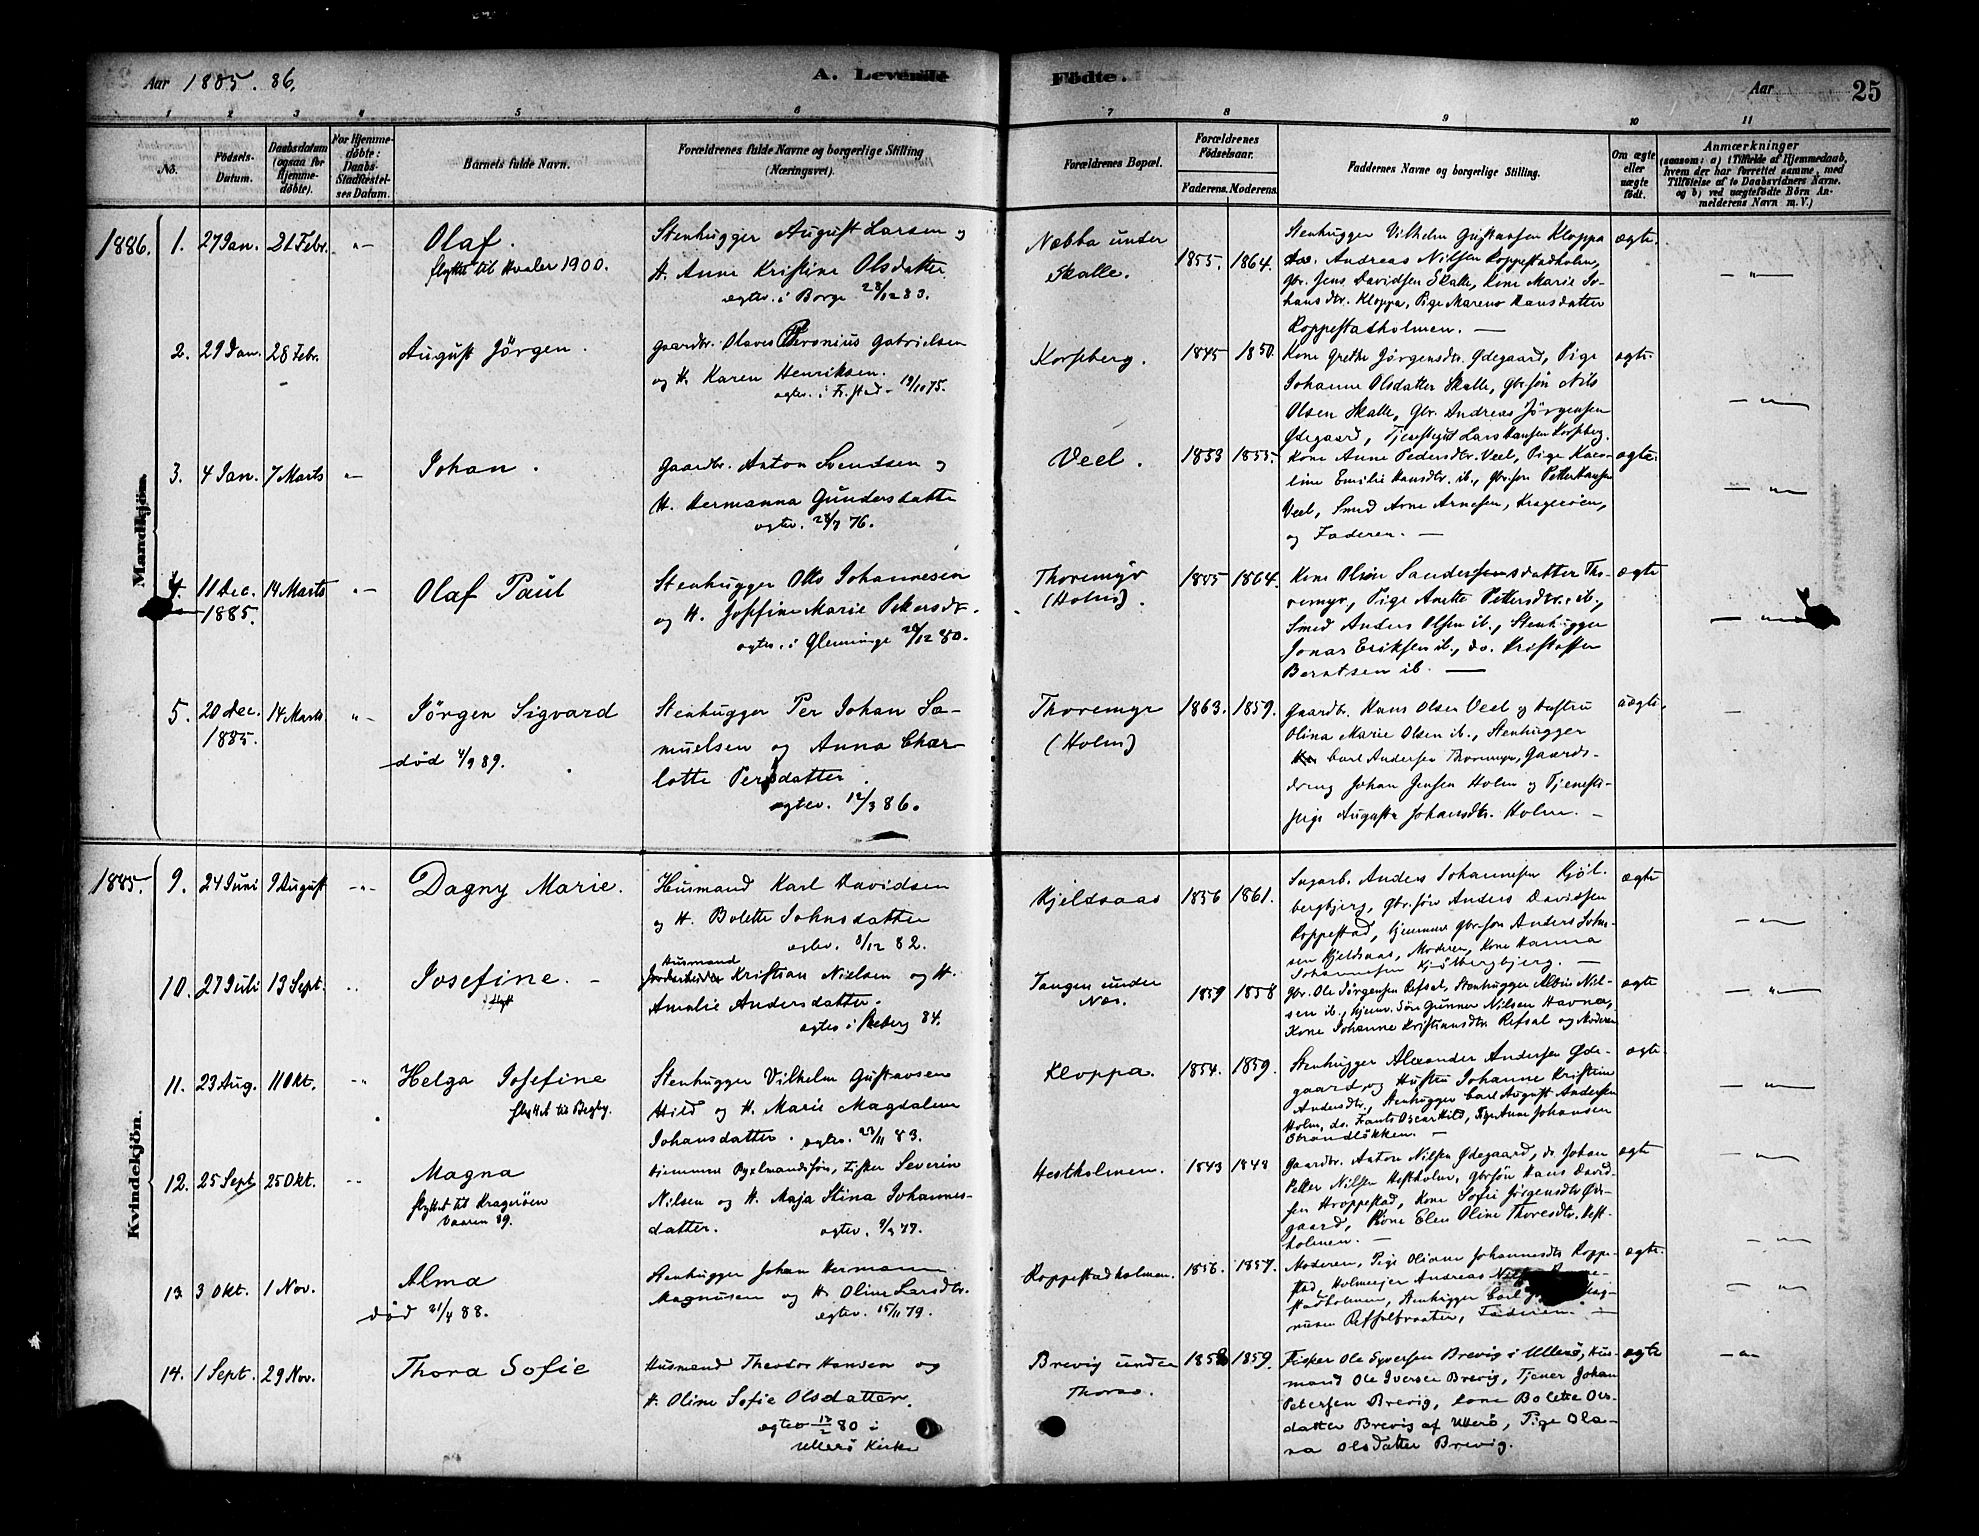 Aar 1885. 86.
A. Levende
Födte.
Aar
25
1 2 3 4 5 6 7 8 9 10 11
No.
Födsels-
Datum.
Daabsdatum
(ogsaa for
Hjemme-
döbte).
For Hjemme-
döbte:
Daabs-
Stadfæstel-
ses Datum.
Barnets fulde Navn.
Forældrenes fulde Navne og borgerlige Stilling
(Næringsvei).
Forældrenes Bopæl.
Forældrenes
Födselsaar.
Faderens. Moderens.
Faddernes Navne og borgerlige Stilling.
Om ægte
eller
uægte
födt.
Anmærkninger
(saasom: a) i Tilfælde af Hjemmedaab,
hvem der har forrettet samme, med
Tilföielse af to Daabsvidners Navne.
og b) ved uægtefödte Börn An-
melderens Navn m. V.)
Mandkjön.
1886. 1. 27 Jan. 21 Febr. "
Olaf.
flyttet til Hvaler 1900.
Stenhugger August Larsen og
H. Anne Kristine Olsdatter
egtev. i Borge 28/12 83.
Næbba under
Skalle.
1855. 1864.
Stenhugger Vilhelm Gustavsen Kloppa
do. Andreas Nilsen Roppestadholm,
Gbr. Jens Davidsen Skalle, Kone Marie Jo-
hansdtr. Kloppa, Pige Maren Hansdatter
Roppestadholmen. —
ægte.
— " —
2. 29 Jan. 28 Febr.
August Jörgen.
Gaardbr. Olaves Gabrielsen
og H. Karen Henriksen.
egtev. i Fr.stad 19/10 75.
Korpberg.
1845 1850.
Kone Grethe Jörgensdtr. Ødegaard, Pige
Johanne Olsdatter Skalle, Gbr.sön Nils
Olsen Skalle, Gbr. Andreas Jörgensen
Ödegaard, Tjenestegut Lars Hansen Korpberg.
ægte.
— " —
3. 4 Jan. 7 Marts "
Johan.
Gaardbr. Anton Svendsen og
H. Hermanna Gundersdatter
egtev. 76.
Veel.
1853 1855.
Kone Anne Pedersdtr. Veel, Pige Karo-
line Emilie Hansdtr. ib., Gbr.sön Petter Hansen
Veel, Smed Arne Arnesen, Kragerøen,
og Faderen. —
ægte.
— " —
4. 11 Dec. 14 Marts "
1885.
Olaf Paul
Stenhugger Otto Johannesen
og H. Josefine Marie Petersdtr.
egtev. i Glemminge 28/12 80.
Thoremyr
(Holm).
1855 1864.
Kone Oline Sandersensdatter Tho-
remyr, Pige Anette Pettersdtr. ib.,
Smed Anders Olsen ib., Stenhugger
Jonas Eriksen ib., do. Kristoffer
Berntsen ib. —
ægte
— " —
5. 20 Dec. 14 Marts "
1885.
Jörgen Sigvard
död 4/9 89.
Stenhugger Per Johan Sa-
muelsen og Anna Char-
lotte Persdatter.
egtev. 12/3 86.
Thoremyr
(Holm)
1863. 1859.
Gaardbr. Hans Olsen Veel og Hustru
Olina Marie Olsen ib., Stenhugger
Carl Andersen Thoremyr, Gaards-
dreng Johan Jensen Holm og Tjeneste-
pige Augusta Johansdtr. Holm. —
uægte.
—
Kvindekjön.
1885. 9. 24 Juni 9 August "
Dagny Marie.
Husmand Karl Davidsen
og H. Bolette Johnsdatter
egtev. 8/12 82.
Kjeldsaas
1856 1861.
Sagarb. Anders Johannesen Kjöl-
bergbjerg, Gbr.sön Anders Davidsen
Roppestad, hjemme Gbr.sön Anders John-
sen Kjeldsaas, Moderen, Kone Hanna
Johannesen Kjölbergbjerg. —
ægte
— " —
10. 27 Juli 13 Sept.
Josefine. —
Husmand
Kristian Nielsen og H.
Amalie Andersdatter.
egtev. i 84.
Tangen under
Næs.
1859 1858
Gbr. Ole Jörgensen Refsal, Stenhugger Albin Nil-
sen ib., hjemv. Sön Gunner Nilsen Havnæs,
Kone Johanne Kristiansdtr. Refsal og Moderen
ægte
— " —
11. 23 Aug. 11 Okt.
Helga Josefine
flyttet til Begby.
Stenhugger Vilhelm Gustavsen
Hild og H. Marie Magdalene
Johansdatter. egtev. 23/11 83.
Kloppa.
1854. 1859.
Stenhugger Alexander Andersen Öde-
gaard og Hustru Johanne Kristine
Andersdtr., Stenhugger Carl August Andersen
Holm, do. Frants Oscar Hild, Pige Anne Johansen
Strandlökken. —
ægte.
— " —
12. 25 Sept 25 Okt.
Magna
flyttet til Kragerøen
Vaaren 89.
Fisker Severin
Nilsen og H. Maja Stina Johannes-
datter. egtev.
Hestholmen.
1843 1848
Gaardbr. Anton Nilsen Ødegaard, do. Johan
Petter Nilsen Hestholm, Gbr.sön Hans David-
sen Hroppestad, Kone Sofie Jörgensdtr. Öde-
gaard, Kone Elen Oline Thoresdtr. Hest-
holmen. —
ægte
— " —
13. 3 Okt. 1 Nov.
Alma
död 21/4 88.
Stenhugger Johan Hermann
Magnusen og H. Oline Larsdtr.
egtev. 15/11 79.
Roppestadholmen.
1856. 1857.
Moderen, Pige Oliane Johannesdtr. Roppe-
stad, Holmeejer Andreas
stadholmen, Stenhugger Carl Mag-
nusen, Faderen.
ægte.
— " —
14. 1 Sept. 29 Nov.
Thora Sofie
Husmand Theodor Hansen og
H. Oline Sofie Olsdatter.
egtev 80 i
Ullerö Kirke
Brevig under
Thorsö.
1858 1859.
Fisker Ole Syversen Brevig i Ullerö, Hus-
mand Ole Iversen Brevig, Tjener Johan
Petersen Brevig, Kone Bolette Ols-
datter Brevig af Ullerö, Pige Ola-
va Olsdatter Brevig.
ægte
— " —